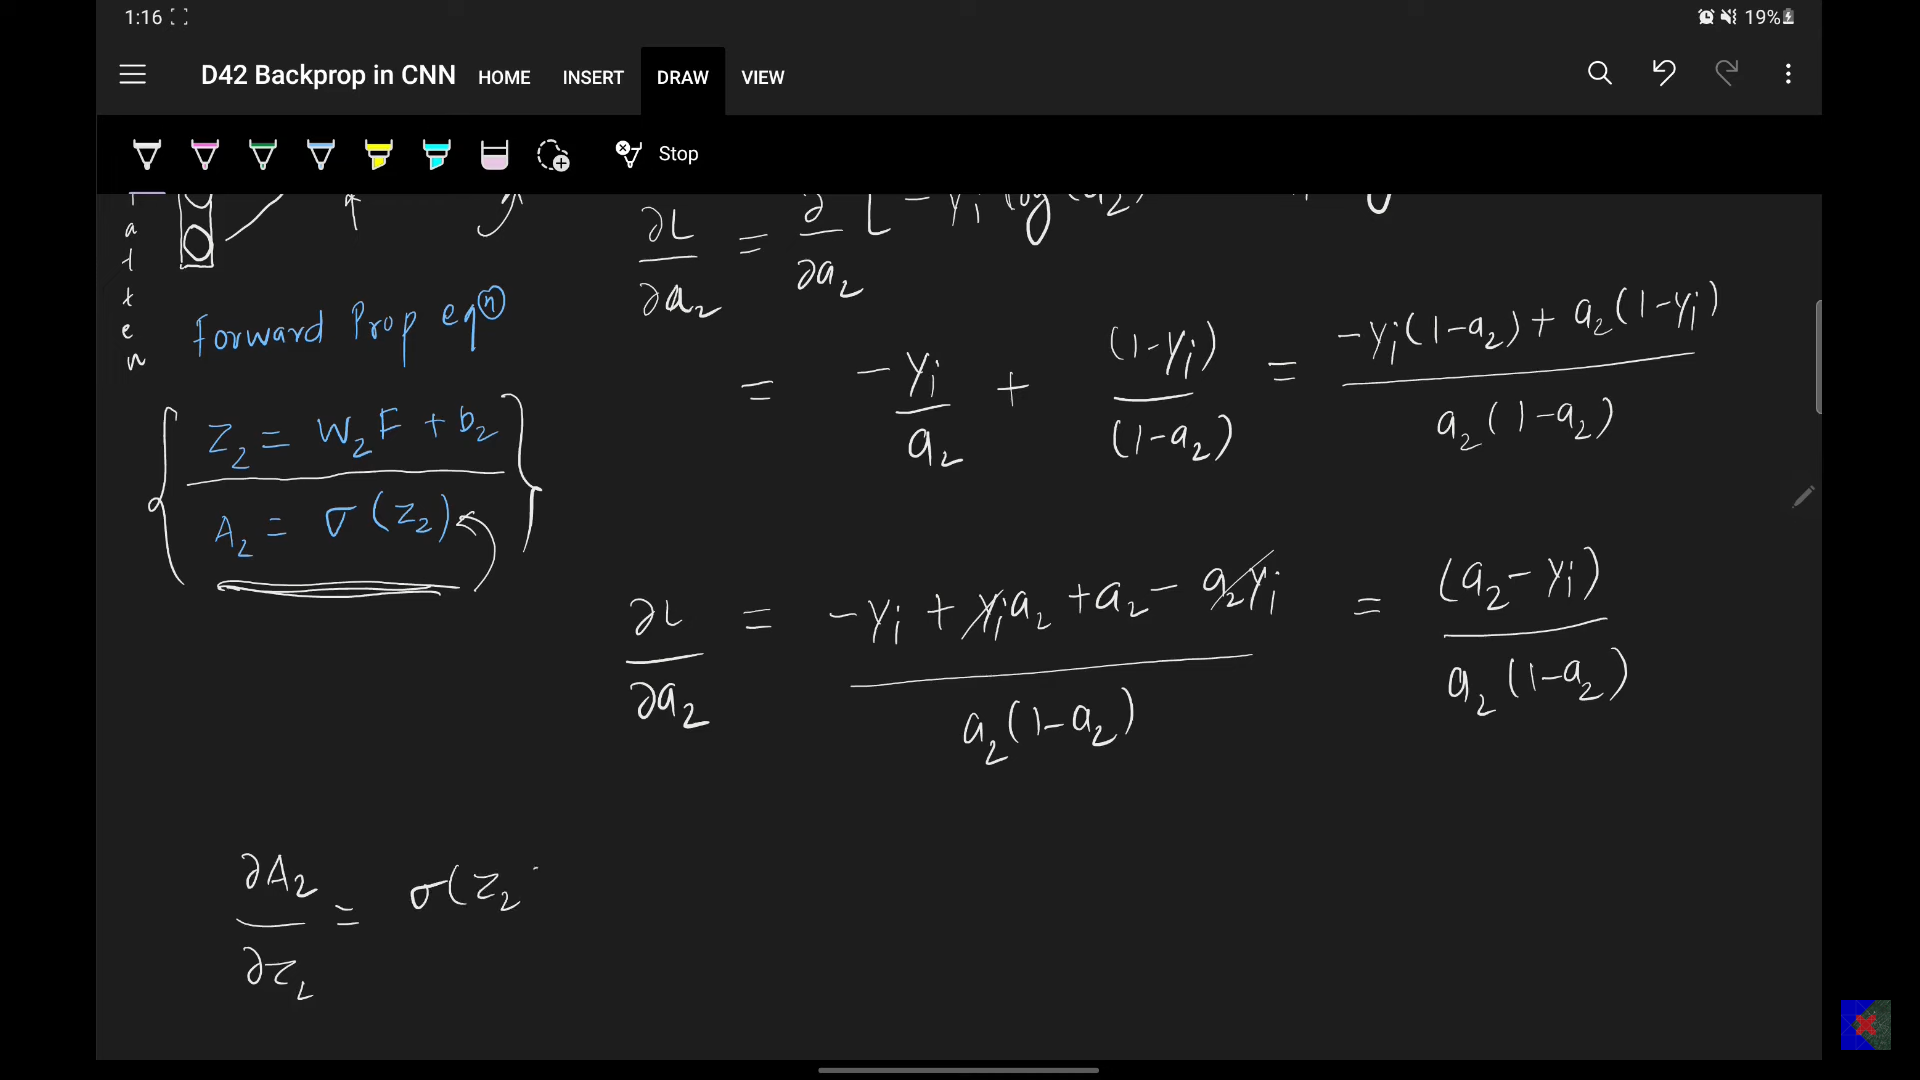 1:16 19%
D42 Backprop in CNN HOME INSERT DRAW VIEW
Stop
a
t
t
e
n
Forward Prop eqⁿ
Z₂ = W₂F + b₂
A₂ = σ(Z₂)
∂L/∂a₂ = ∂/∂a₂ [ -yᵢ log(a₂)
= -yᵢ/a₂ + (1-yᵢ)/(1-a₂) = -yᵢ(1-a₂) + a₂(1-yᵢ) / a₂(1-a₂)
∂L/∂a₂ = -yᵢ + yᵢa₂ + a₂ - a₂yᵢ / a₂(1-a₂) = (a₂-yᵢ) / a₂(1-a₂)
∂A₂/∂Z₂ = σ(Z₂